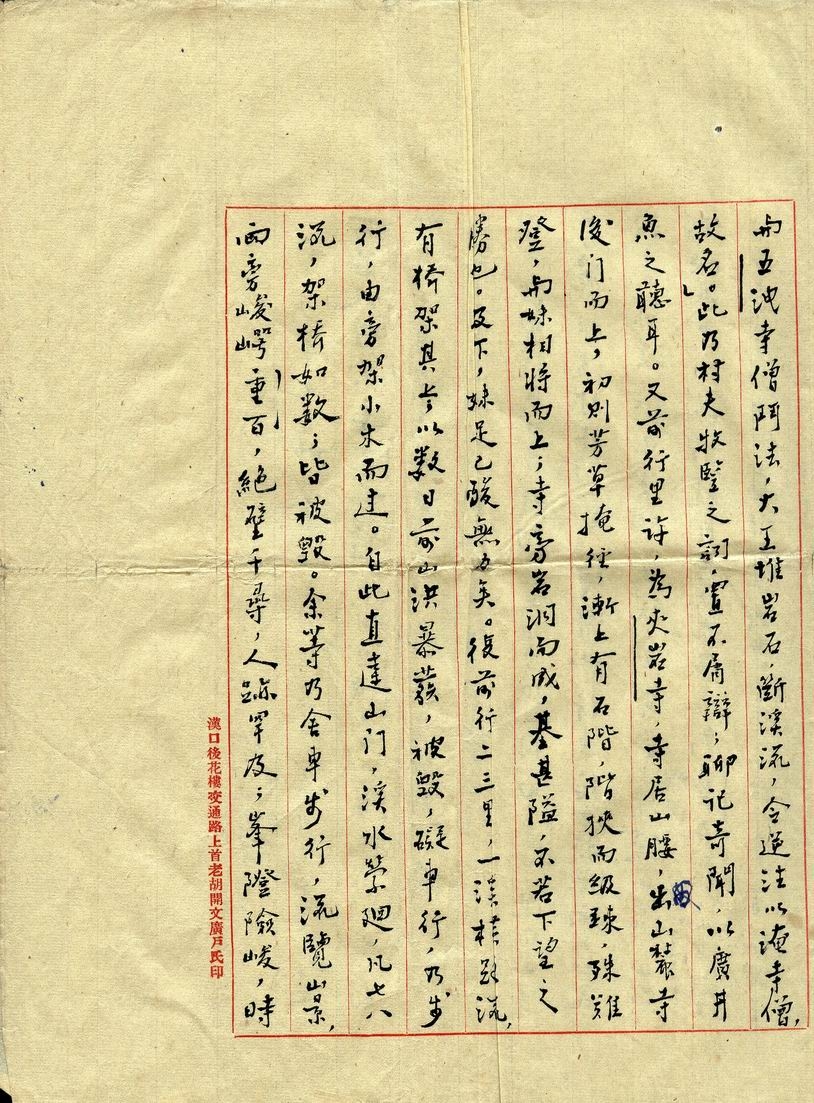 与五池寺僧鬥法，大王堆岩石，斷溪流，令逆注以淹寺僧，
故名。此乃村夫牧豎之詞，置不屑辯；聊記奇聞，以廣井
魚之聽耳。又前行里許，為夾岩寺，寺居山腰，由山麓寺
後门而上，初則芳草掩徑，漸上有石階，階狹而級疎，殊難
登，与妹相將而上；寺旁岩洞而成，基甚隘，不若下望之
勝也。及下，妹足已酸無力矣。復前行二三里，一溪橫路流，
有橋架其上，以數日前山洪暴發，被毀，礙車行，乃步
行，由旁架小木而過。自此直達山门，溪水縈廻，凡七八
流，架橋如數；皆被毀。余等乃舍車步行，流覽山景，
両旁峻崿重百，絕壁千尋，人跡罕及；峯隥險峻，時
漢口後花樓交通路上首老胡開文廣戶氏印